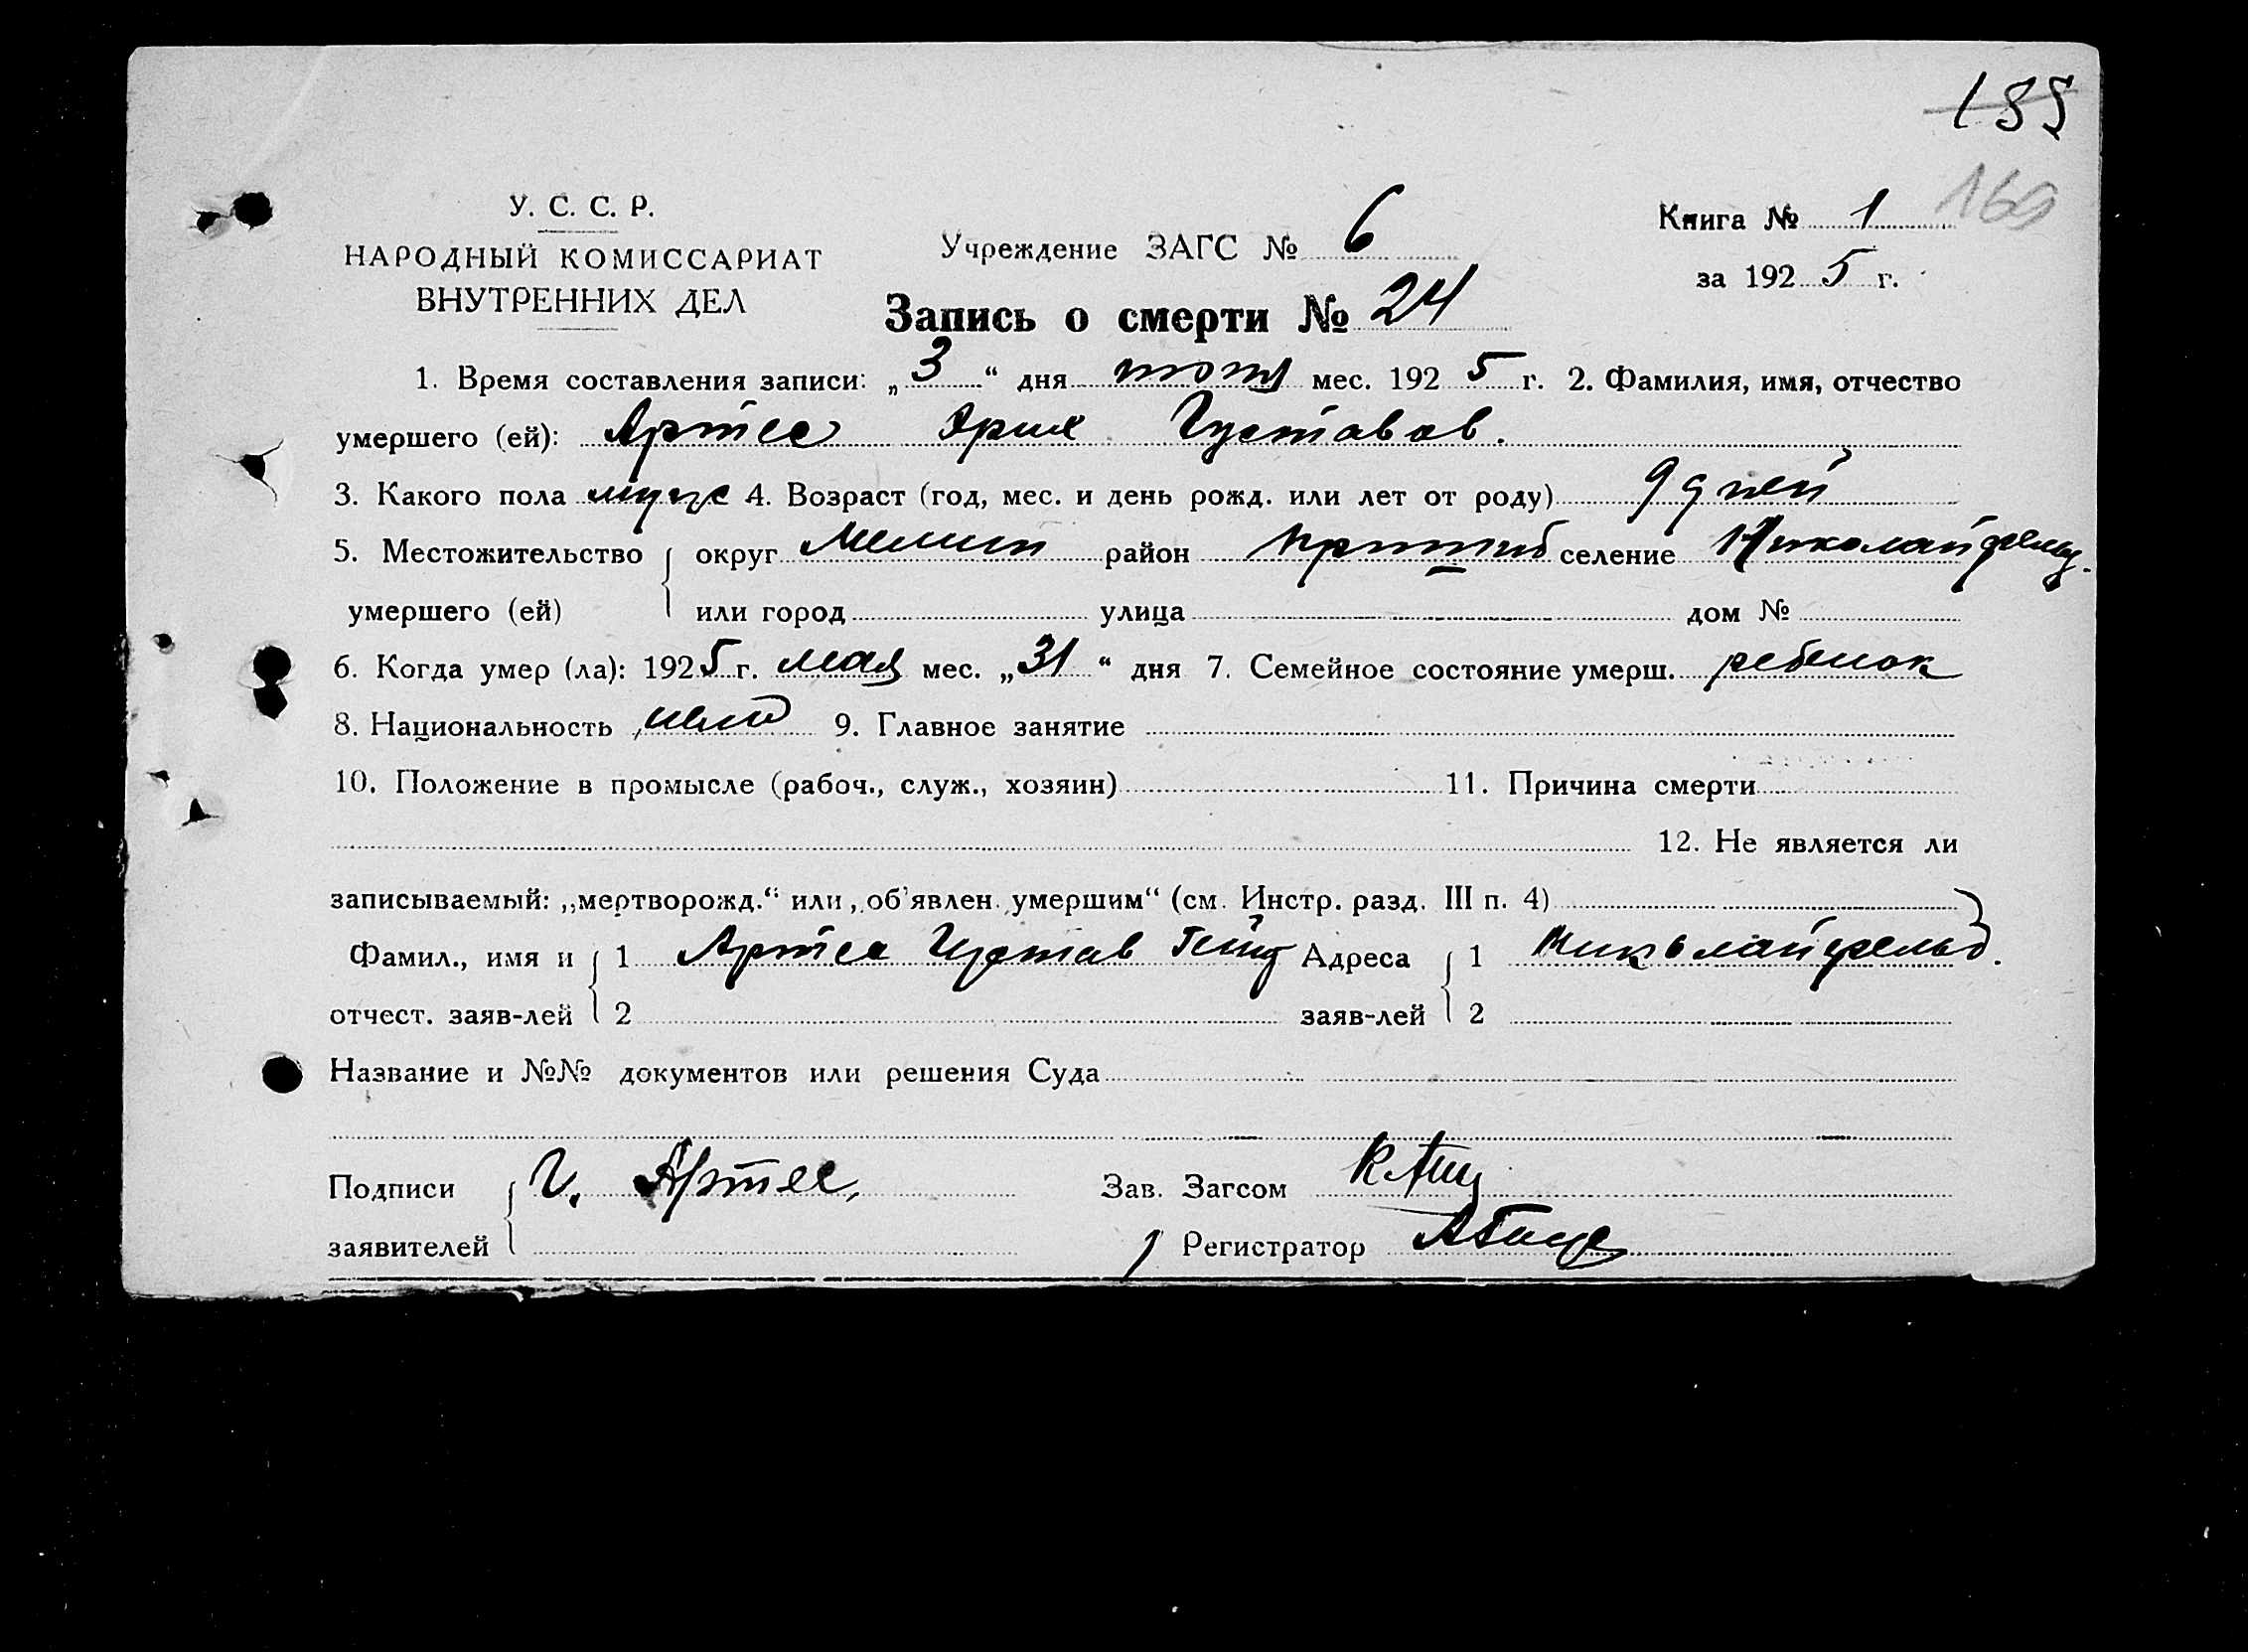 135
169
У. С. С. Р.
НАРОДНЫЙ КОМИССАРИАТ
ВНУТРЕННИХ ДЕЛ
Учреждение ЗАГС № 6
Книга № 1
за 1925 г.
Запись о смерти № 24
1. Время составления записи: „3“ дня мес. 1925 г. 2. Фамилия, имя, отчество
умершего (ей): Артес Эрих Густавов.
3. Какого пола муж 4. Возраст (год, мес. и день рожд. или лет от роду) 9 дней
5. Местожительство округ Мелит район селение Николайфельд.
умершего (ей) или город улица дом №
6. Когда умер (ла): 1925 г. мая мес. „31“ дня 7. Семейное состояние умерш. ребенок
8. Национальность 9. Главное занятие
10. Положение в промысле (рабоч., служ., хозяин) 11. Причина смерти
12. Не является ли
записываемый: „мертворожд.“ или „об'явлен умершим“ (см. Инстр. разд. III п. 4)
Фамил., имя и 1 Артес Густав Адреса 1 Николайфельд.
отчест. заяв-лей 2 заяв-лей 2
Название и №№ документов или решения Суда
Подписи Г. Артес, Зав. Загсом
заявителей Регистратор